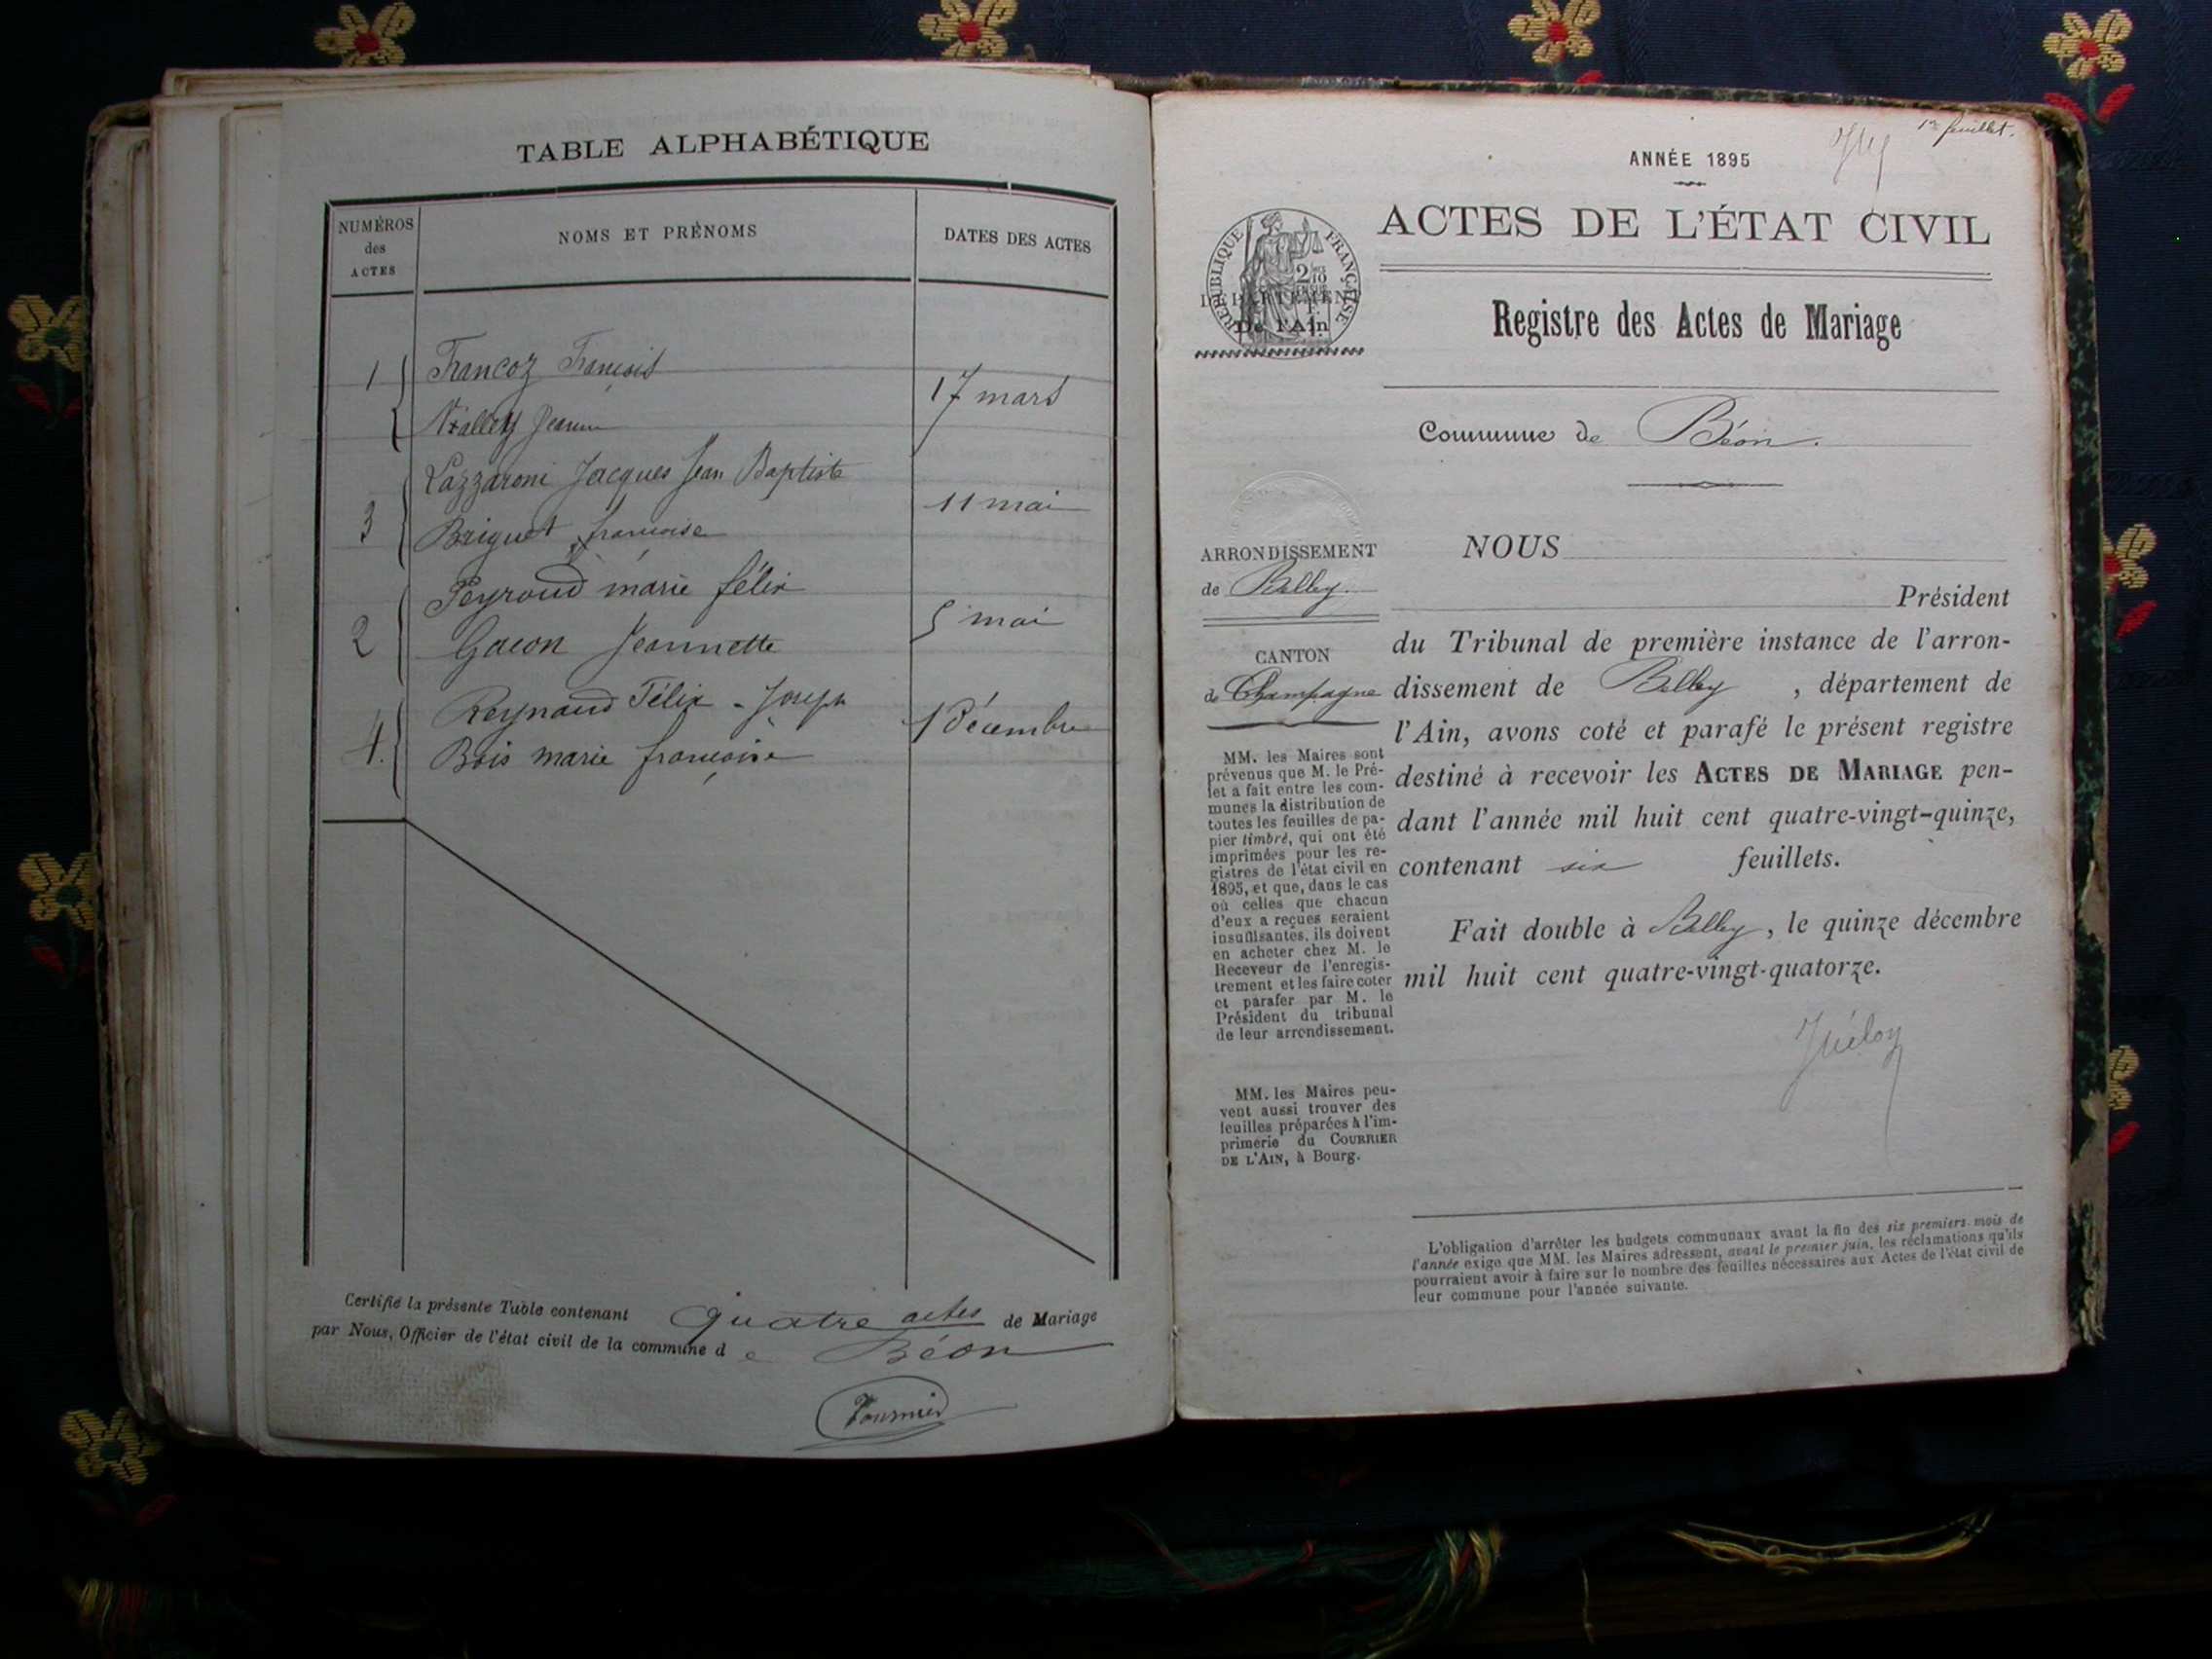 TABLE ALPHABÉTIQUE
NUMÉROS
des
ACTES
NOMS ET PRÉNOMS
DATES DES ACTES
1
Francoz François
17 mars
Jeanne
Lazzaroni Jacques Jean Baptiste
3
11 mai
Briguet françoise
Peyroud marie félix
2
5 mai
Gacon Jeannette
Reynaud Félix - Joseph
4.
1 Décembre
Bois marie françoise
Certifié la présente Table contenant quatre actes de Mariage
par Nous, Officier de l'état civil de la commune de Béon
Fournier
1er feuillet.
ANNÉE 1895
ACTES DE L'ÉTAT CIVIL
RÉPUBLIQUE FRANÇAISE
DÉPARTEMENT
De l'Ain
Registre des Actes de Mariage
Commune de Béon.
ARRONDISSEMENT
de Belley.
CANTON
de Champagne
MM. les Maires sont
prévenus que M. le Pré-
fet a fait entre les com-
munes la distribution de
toutes les feuilles de pa-
pier timbré, qui ont été
imprimées pour les re-
gistres de l'état civil en
1895, et que, dans le cas
où celles que chacun
d'eux a reçues seraient
insuffisantes, ils doivent
en acheter chez M. le
Receveur de l'enregis-
trement et les faire coter
et parafer par M. le
Président du tribunal
de leur arrondissement.
MM. les Maires peu-
vent aussi trouver des
feuilles préparées à l'im-
primerie du COURRIER
DE L'AIN, à Bourg.
NOUS
Président
du Tribunal de première instance de l'arron-
dissement de Belley, département de
l'Ain, avons coté et parafé le présent registre
destiné à recevoir les ACTES DE MARIAGE pen-
dant l'année mil huit cent quatre-vingt-quinze,
contenant six feuillets.
Fait double à Belley, le quinze décembre
mil huit cent quatre-vingt-quatorze.
L'obligation d'arrêter les budgets communaux avant la fin des six premiers mois de
l'année exige que MM. les Maires adressent, avant le premier juin, les réclamations qu'ils
pourraient avoir à faire sur le nombre des feuilles nécessaires aux Actes de l'état civil de
leur commune pour l'année suivante.